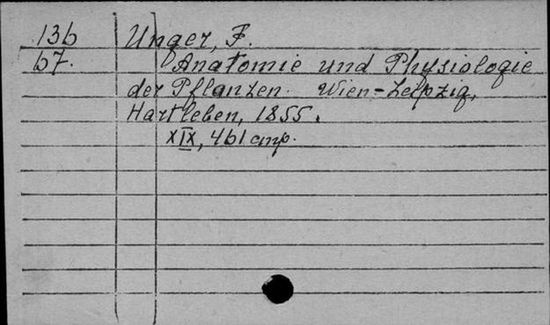 136 Unger, F.
67. Anatomie und Physiologie
der Pflanzen. Wien-Leipzig,
Hartleben, 1855.
XIX, 461 стр.